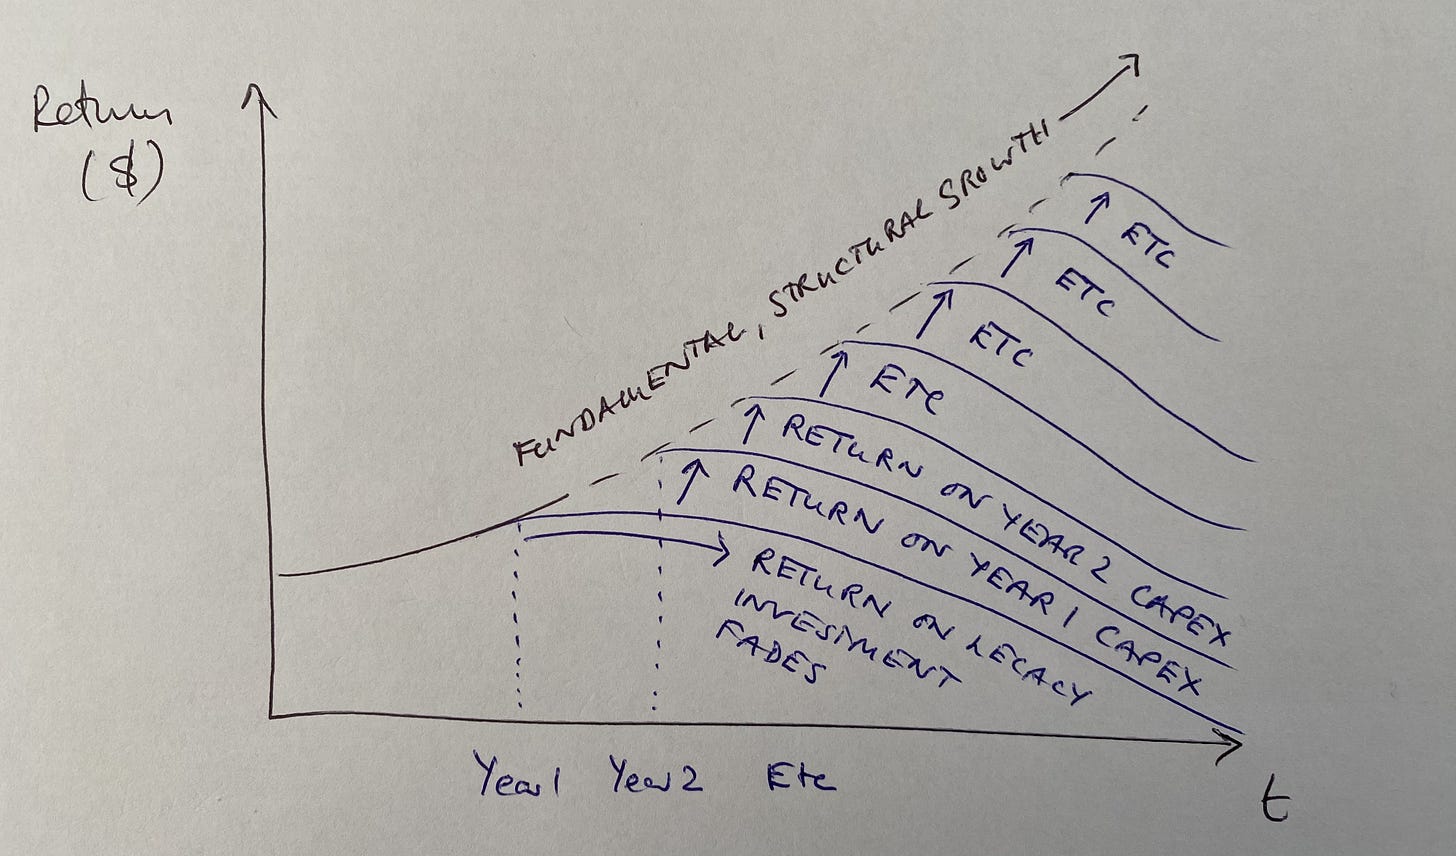 Return
($)
FUNDAMENTAL, STRUCTURAL GROWTH
ETC
ETC
ETC
ETC
RETURN ON YEAR 2 CAPEX
RETURN ON YEAR 1 CAPEX
RETURN ON LEGACY
INVESTMENT
FADES
Year 1 Year 2 Etc
t